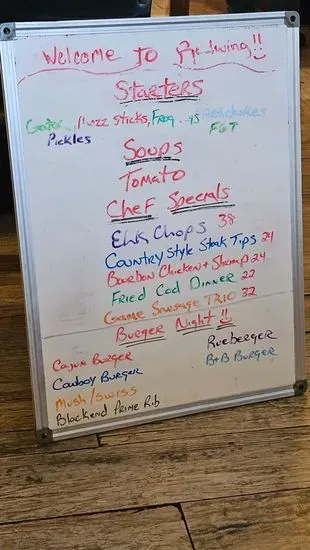 Welcome To Redwing!!
Starters
Gator, Mozz Sticks, Frog Legs Artichokes
Pickles FGT
Soups
Tomato
Chef Specials
Elk Chops 38
Country Style Steak Tips 24
Bourbon Chicken + Shrimp 24
Fried Cod Dinner 22
Game Sausage Trio 32
Burger Night!!
Cajun Burger Rueberger
Cowboy Burger B+B Burger
Mush/Swiss
Blackend Prime Rib